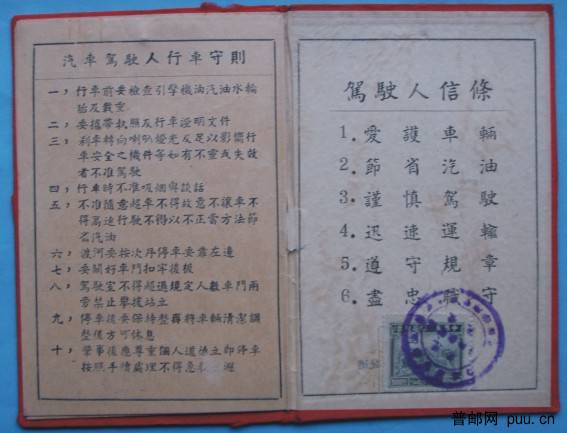 汽車駕駛人行車守則
一，行車前要檢查引擎機油汽油水輪
胎及載重
二，要攜帶執照及行車證明文件
三，剎車轉向喇叭燈光及足以影響行
車安全之機件等如有不靈或失效
者不准駕駛
四，行車時不准吸烟與談話
五，不准隨意超車不得故意不讓車不
得高速行駛不得以不正當方法節
省汽油
六，渡河要按次序停車要靠左邊
七，要關好車門扣牢後板
八，駕駛室不得超過規定人數車門兩
旁禁止攀援站立
九，停車後要保持整齊將車輛清潔調
整後方可休息
十，肇事後應尊重個人道德立即停車
按照手續處理不得急
駕駛人信條
1.愛護車輛
2.節省汽油
3.謹慎駕駛
4.迅速運輸
5.遵守規章
6.盡忠職守
普邮网 puu.cn